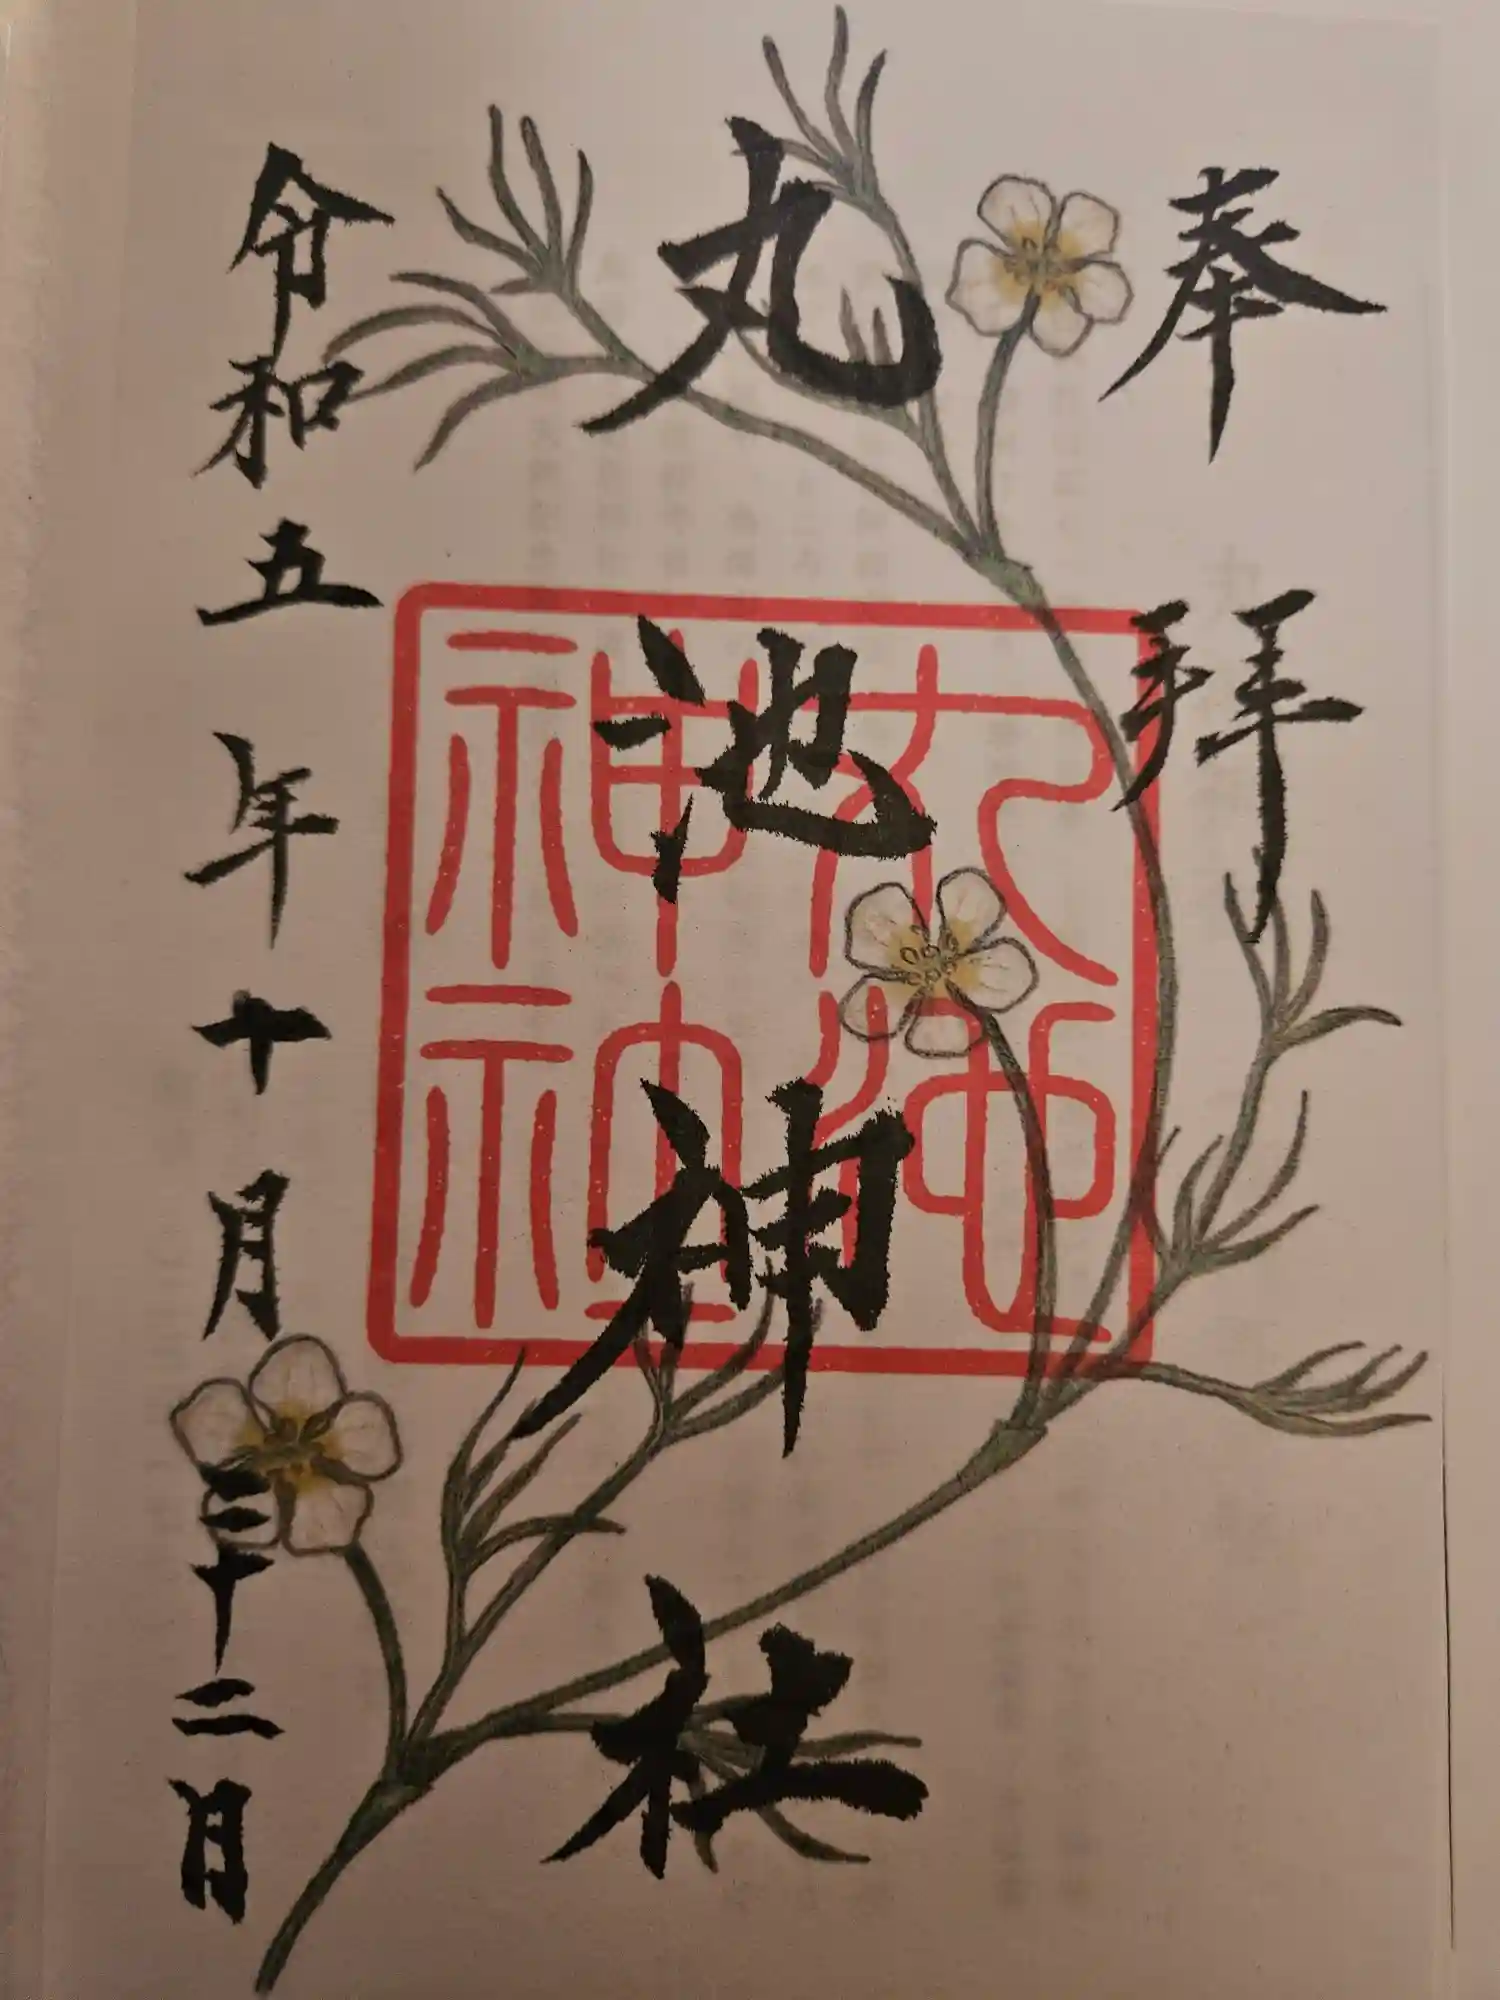 奉拝
丸池神社
丸池
神社
令和五年十月二十二日